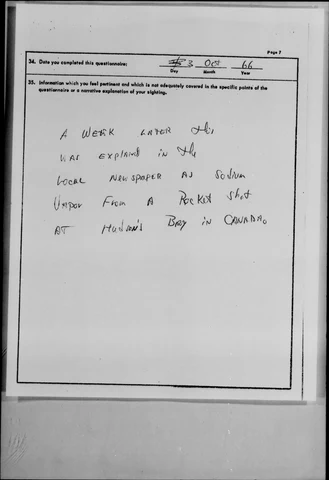 Page 7
34. Date you completed this questionnaire: 3 Oct 66
Day Month Year
35. Information which you feel pertinent and which is not adequately covered in the specific points of the
questionnaire or a narrative explanation of your sighting.
A WEEK LATER this
WAS explaind in the
LOCAL NEWSPAPER AS Sodium
VAPOR From A Rocket Shot
AT Hudson's BAY in CANADA.